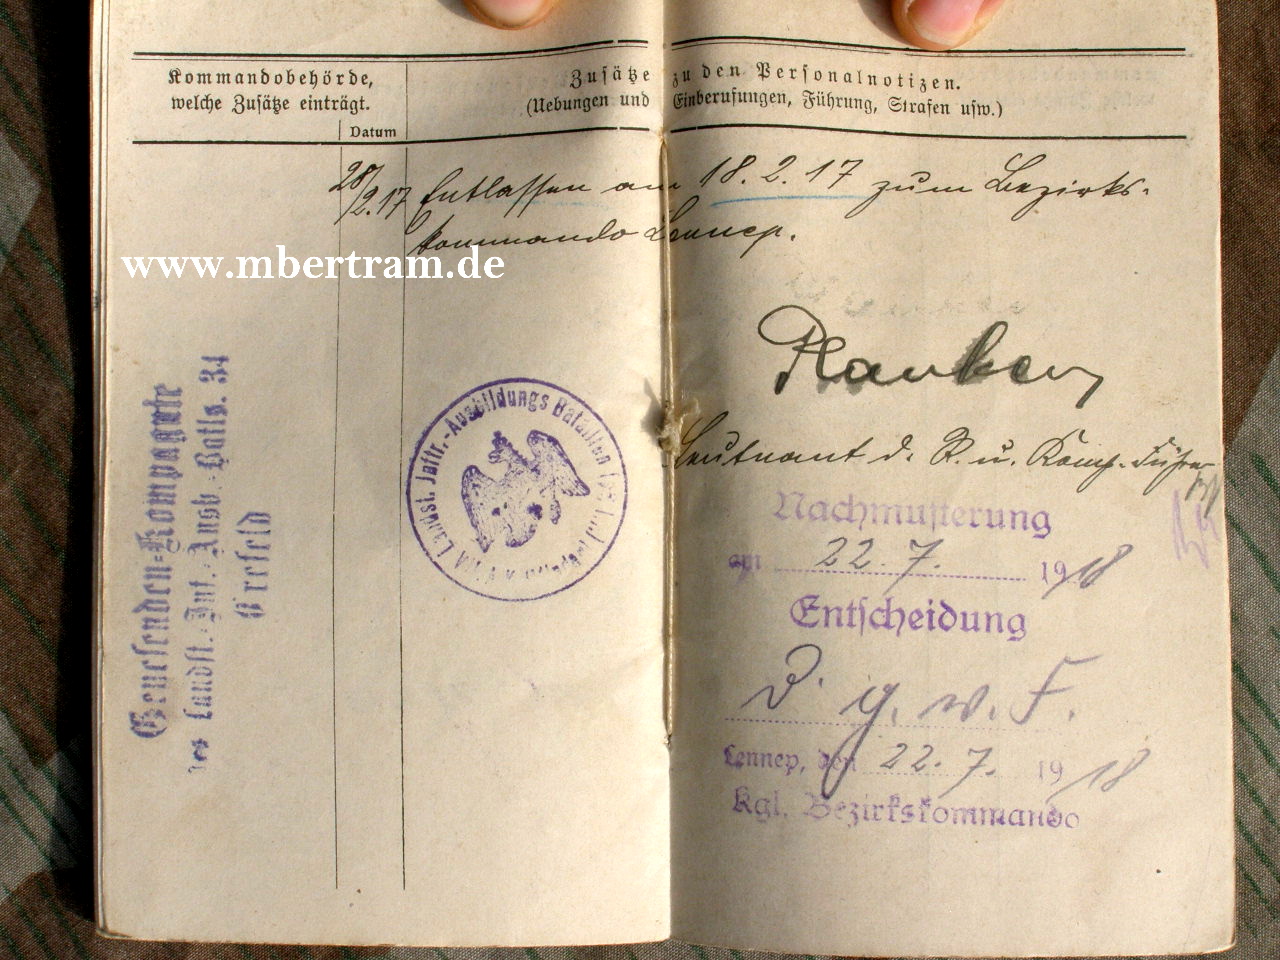 Kommandobehörde,
welche Zusätze einträgt.
Datum
Zusätze zu den Personalnotizen.
(Uebungen und Einberufungen, Führung, Strafen usw.)
28/2.17 Entlassen am 18.2.17 zum Bezirks-
kommando Lennep.
www.mbertram.de
Leutnant d. R. u. Komp. Führer
Genesenden-Kompagnie
des Landst.-Inf.-Ausb.-Batls. 34
Crefeld
Landst. Inftr.-Ausbildungs Bataillon
Nachmusterung
am 22.7. 1918
Entscheidung
g. w. F.
Lennep, den 22.7. 1918
Kgl. Bezirkskommando